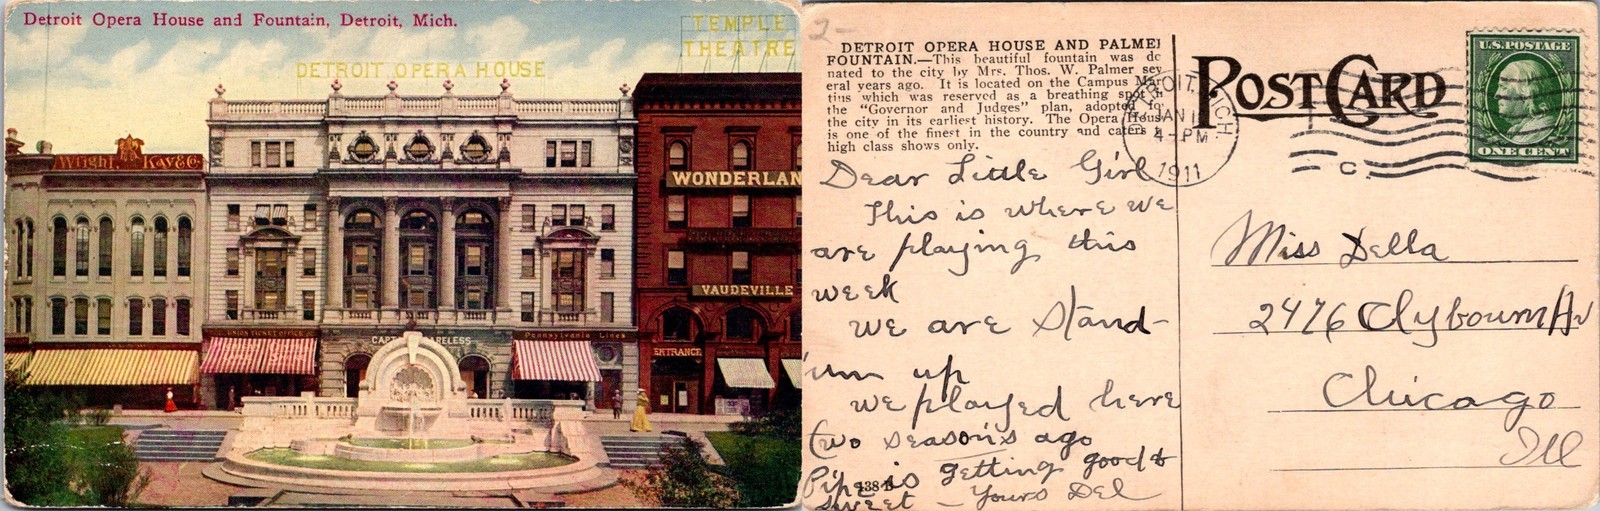 Detroit Opera House and Fountain, Detroit, Mich.
TEMPLE
THEATRE
DETROIT OPERA HOUSE
Wright, Kay & Co.
WONDERLAN
VAUDEVILLE
UNION TICKET OFFICE
Pennsylvania Lines
CAPT CARELESS
ENTRANCE
2-
DETROIT OPERA HOUSE AND PALMER
FOUNTAIN.—This beautiful fountain was do
nated to the city by Mrs. Thos. W. Palmer sev
eral years ago. It is located on the Campus Mar
tius which was reserved as a breathing spot
the "Governor and Judges" plan, adopted fo
the city in its earliest history. The Opera Hous
is one of the finest in the country and caters
high class shows only.
POST CARD
U.S. POSTAGE
ONE CENT
DETROIT, MICH.
JAN 1
4-PM
1911
C
Dear Little Girl
This is where we
are playing this
week
We are stand-
'um up
We played here
two seasons ago
Pipe is getting good &
sweet - Yours Del
438-B
Miss Della
2476 Clybourn Av
Chicago
Ill